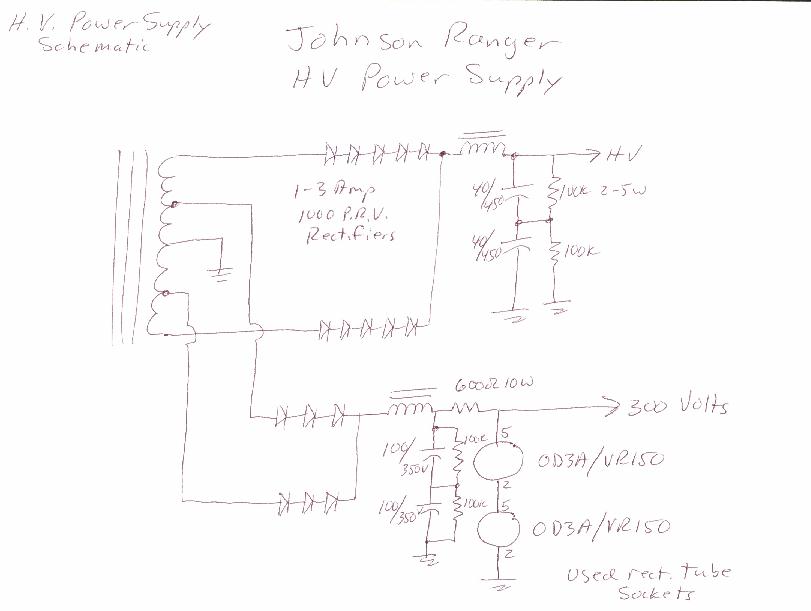 H. V. Power Supply
Schematic
Johnson Ranger
HV Power Supply
HV
1-3 Amp
1000 P.R.V.
Rectifiers
40/450
100K 2-5W
40/450
100K
600Ω 10W
300 Volts
5
100K
100/350V
OD3A/VR150
2
5
100/350V
100K
OD3A/VR150
2
Used rect. tube
Sockets